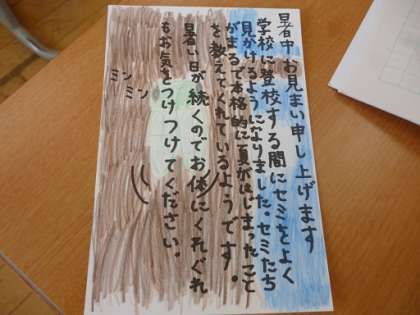 暑中お見まい申し上げます
学校に登校する間にセミをよく
見かけるようになりました。セミたち
がまるで本格的に夏がはじまったこと
を教えてくれているようです。
暑い日が続くのでお体にくれぐれ
もお気をつけつけてください。
ミンミン